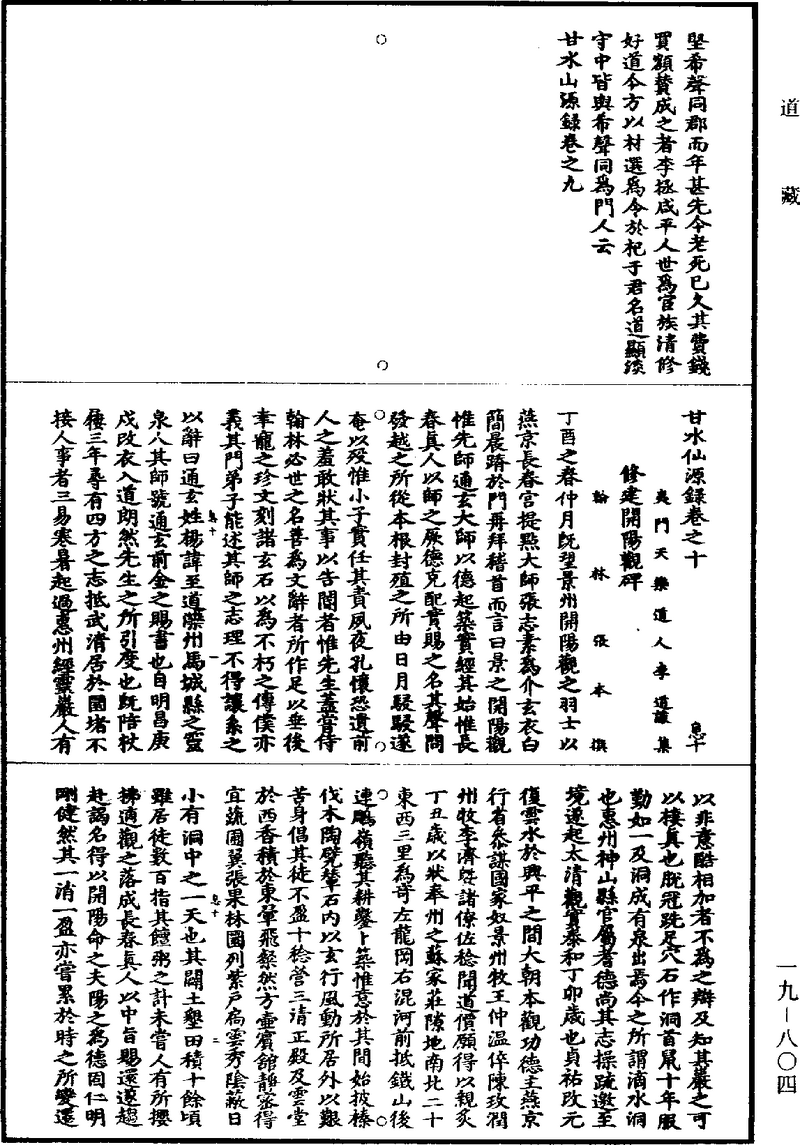 道藏
堅希聲同郡而年甚先今老死已久其費錢
買額贊成之者李拯咸平人世爲官族清修
好道今方以材選爲令於杞于君名道顯淡
守中皆與希聲同爲門人云
甘水山源錄卷之九
甘水仙源錄卷之十
息十
夷門天樂道人李道謙集
修建開陽觀碑
翰林張本撰
丁酉之春仲月既望景州開陽觀之羽士以
燕京長春宮提點大師張志素爲介玄衣白
簡晨躋於門再拜稽首而言曰景之開陽觀
惟先師通玄大師以德起築實經其始惟長
春真人以師之厥德克配實賜之名其聲問
發越之所從本根封殖之所由日月駸駸遂
奄以歿惟小子實任其責夙夜孔懷恐遺前
人之羞敢狀其事以告聞者惟先生蓋嘗侍
翰林必世之名善爲文辭者所作足以垂後
幸寵之珍文刻諸玄石以爲不朽之傳僕亦
義其門弟子能述其師之志理不得讓系之
息十
一
以辭曰通玄姓楊諱至道灤州馬城縣之靈
泉人其師號通玄前金之賜書也自明昌庚
戌改衣入道朗然先生之所引度也既陪杖
屨三年尋有四方之志抵武清居於圜堵不
接人事者三易寒暑起過惠州經靈巖人有
以非意酷相加者不爲之辯及知其巖之可
以棲真也旣冠跣足穴石作洞首尾十年服
勤如一及洞成有泉出焉今之所謂滴水洞
也惠州神山縣官屬耆德尚其志操疏邀至
境遂起太清觀實泰和丁卯歲也貞祐改元
復雲水於興平之間大朝本觀功德主燕京
行省參謀國家奴景州牧王仲溫倅陳玫潤
州牧李濟曁諸僚佐稔聞道價願得以親炙
丁丑歲以狀奉州之蘇家莊隙地南北二十
東西三里爲寄左龍岡右混河前抵鐵山後
連鵰嶺聽其耕鑿卜築惟意於其間始披榛
伐木陶甓輦石內以玄行風動所居外以艱
苦身倡其徒不盈十稔營三清正殿及雲堂
於西香積於東翬飛粲然方壺賓館靜密得
宜蔬圃翼張果林園列紫戶扃雲秀陰蔽日
息十
二
小有洞中之一天也其闢土墾田積十餘頃
雖居徒數百指其饘粥之計未嘗人有所攖
拂適觀之落成長春真人以中旨賜還遠趨
赴謁名得以開陽命之夫陽之爲德固仁明
剛健然其一消一盈亦嘗累於時之所變還
一九-八〇四